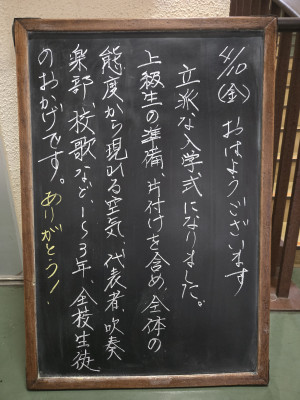 4/10(金) おはようございます
立派な入学式になりました。
上級生の準備、片付けを含め、全体の
態度から現れる空気、代表者、吹奏
楽部、校歌など、1〜3年、全校生徒
のおかげです。ありがとう!